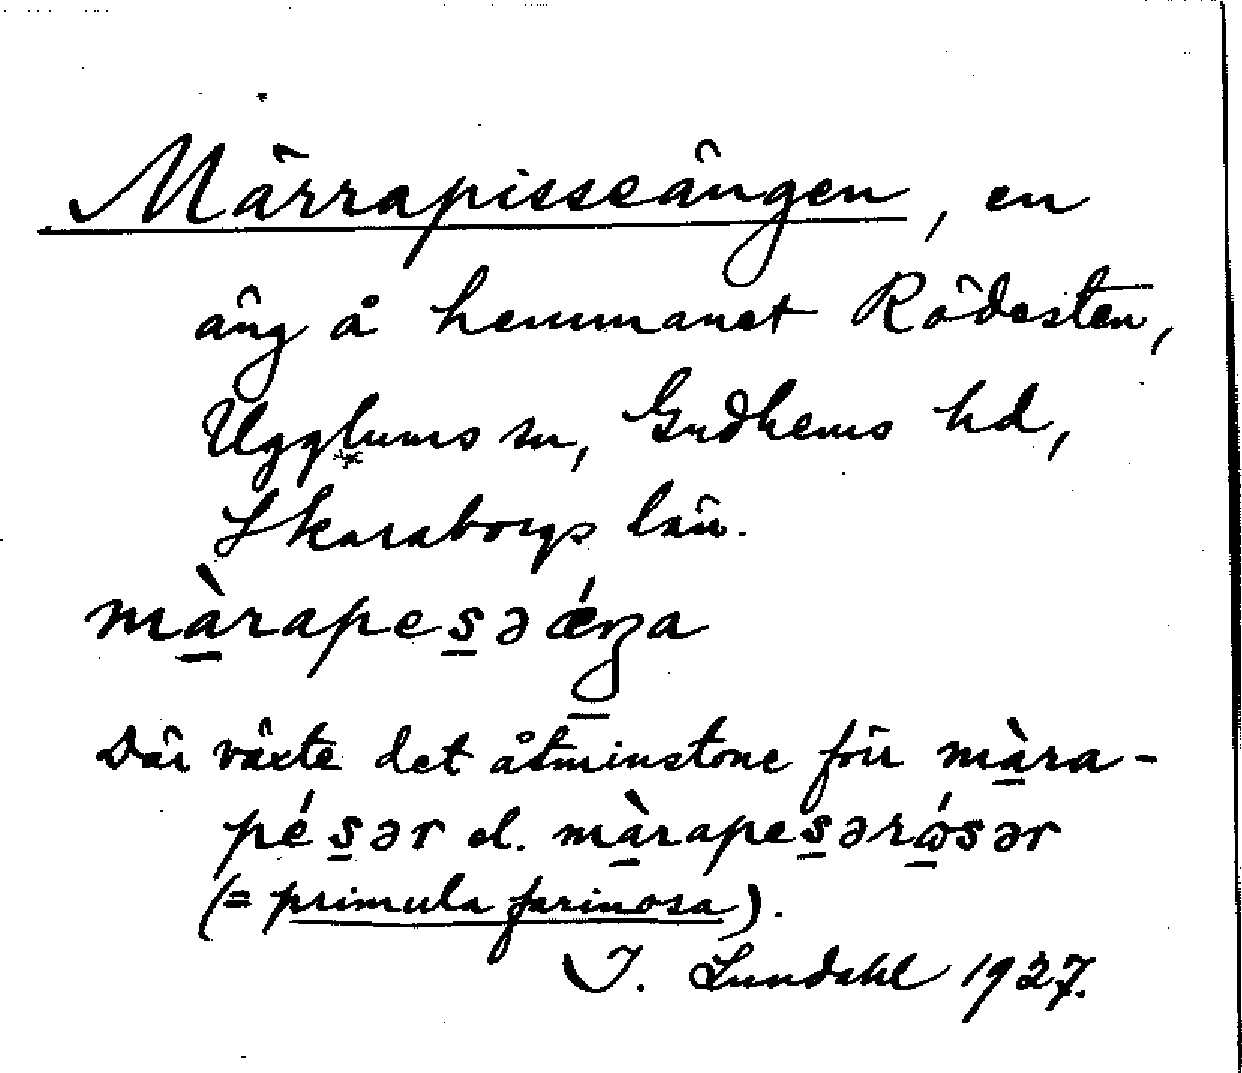 Märrapisseängen, en
äng å hemmanet Rödesten,
Ugglums sn, Gudhems hd,
Skaraborgs län.
màrapesəǽŋa
Där växte det åtminstone för màra-
pésər el. màrapesərósər
(= primula farinosa).
I. Lundahl 1927.